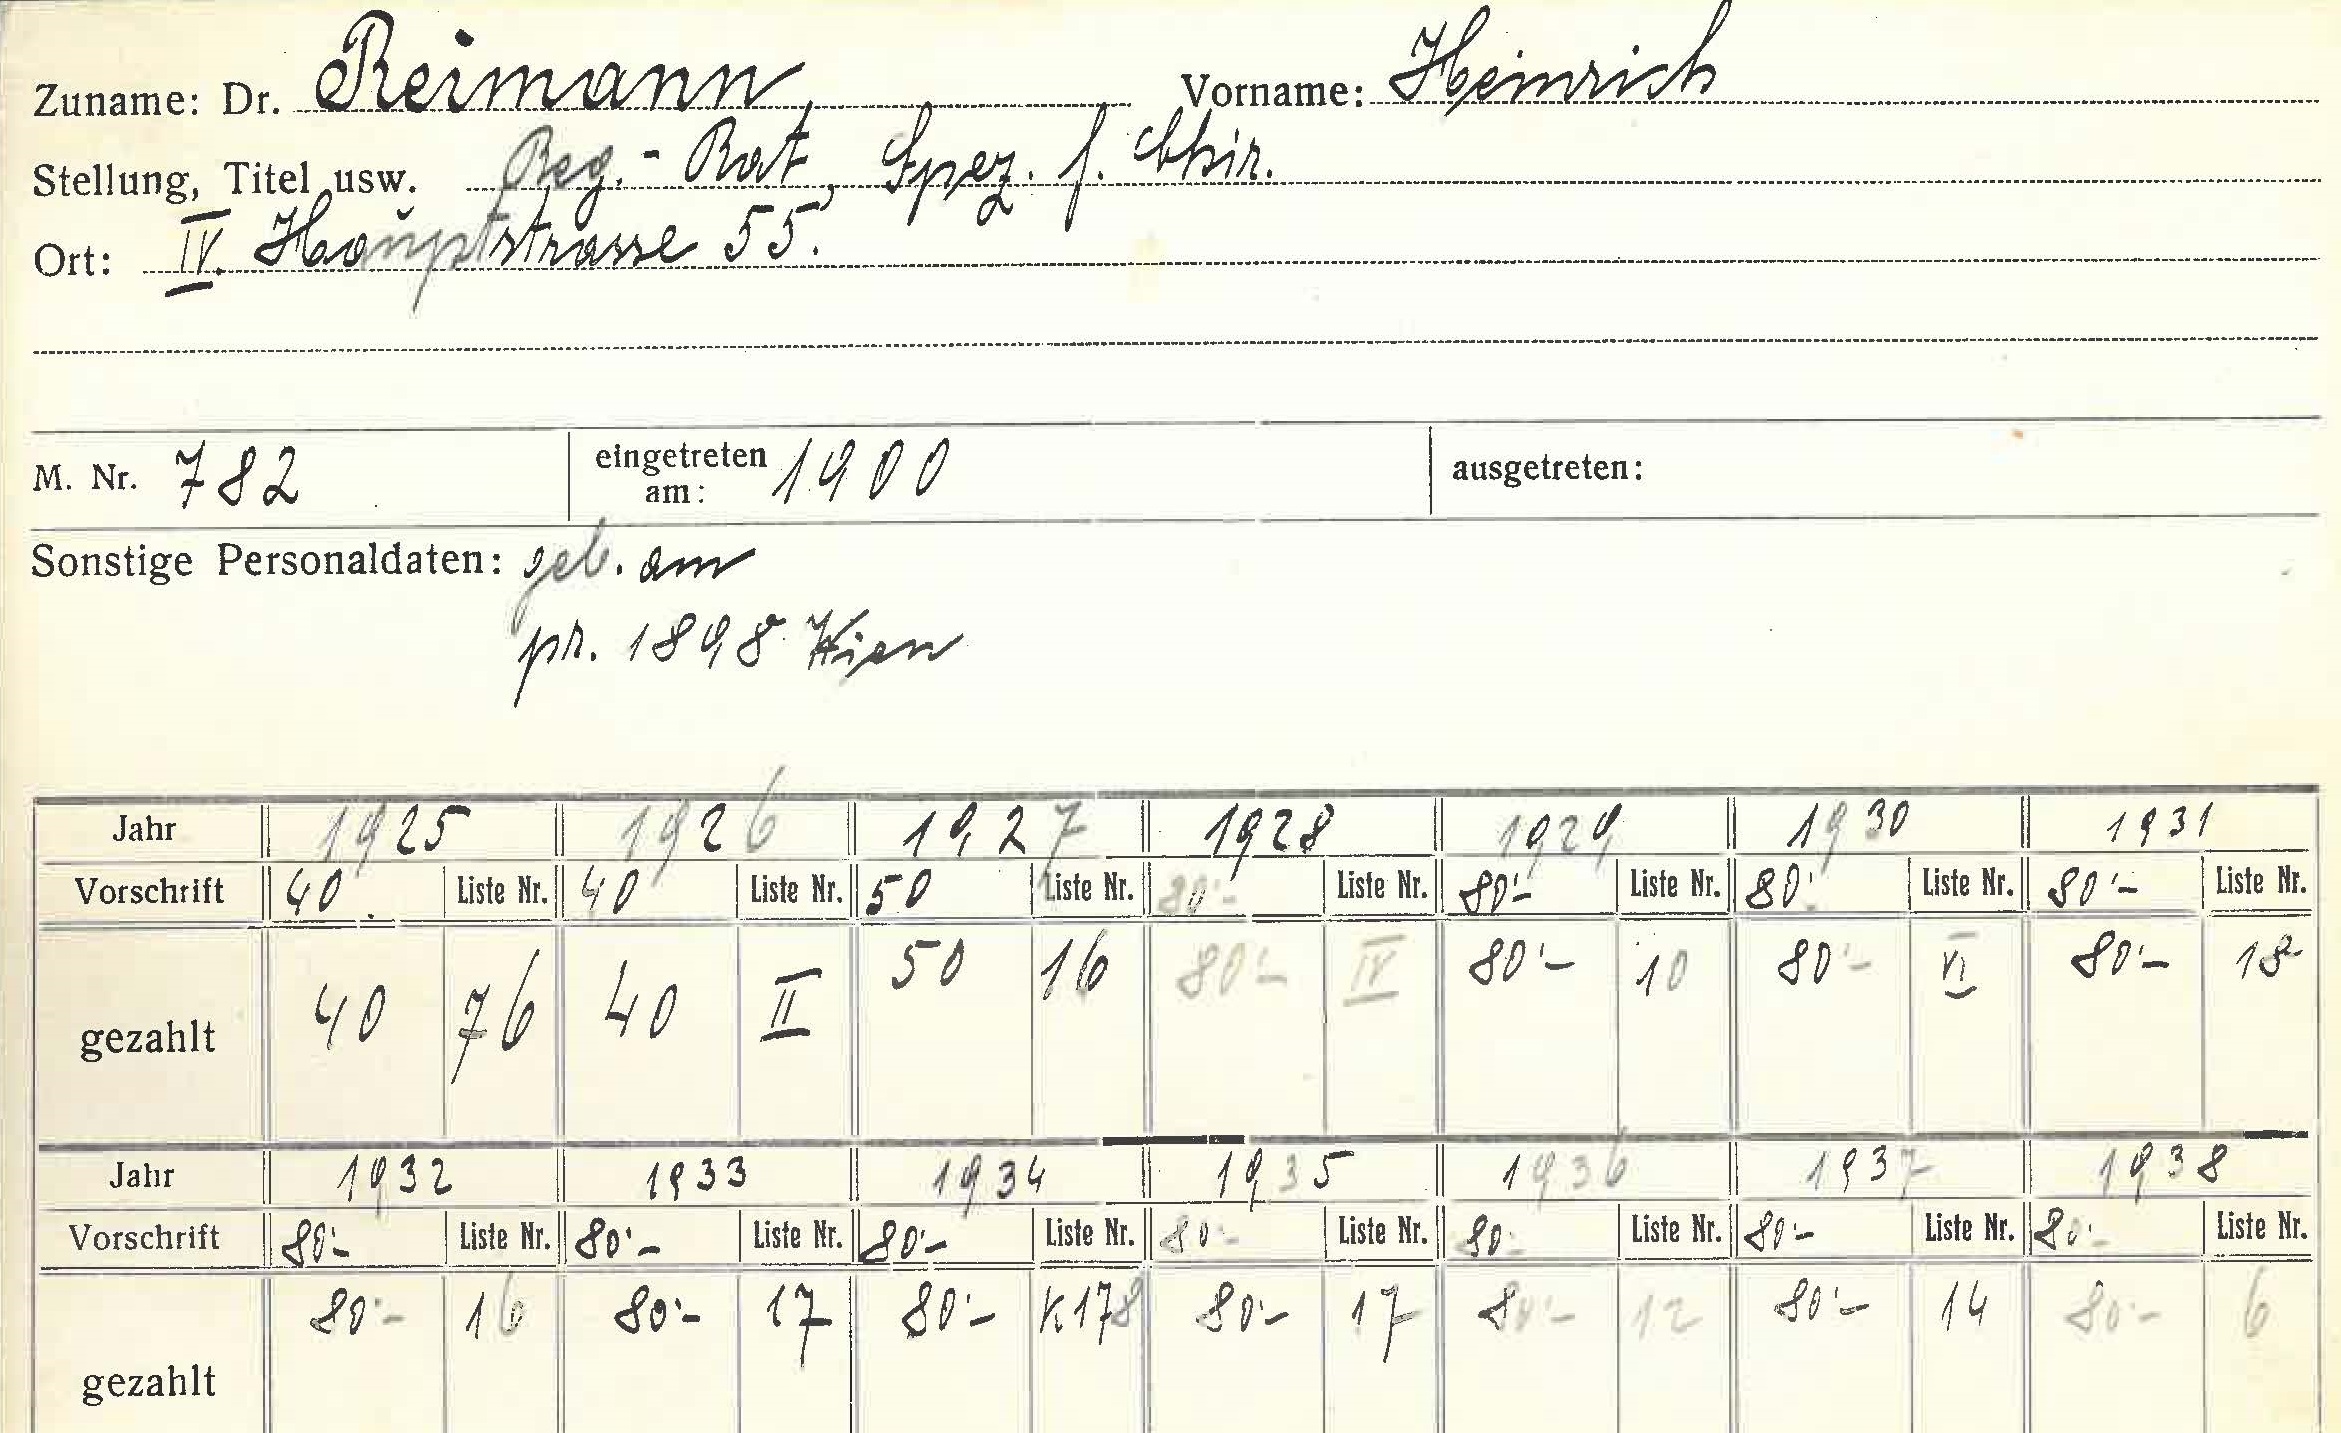 Zuname: Dr. Reimann Vorname: Heinrich
Stellung, Titel usw. Reg.-Rat, Spez. f. Chir.
Ort: IV. Hauptstrasse 55.
M. Nr. 782 eingetreten am: 1900 ausgetreten:
Sonstige Personaldaten: geb. am
pr. 1898 Wien
Jahr 1925 1926 1927 1928 1929 1930 1931
Vorschrift 40. Liste Nr. 40 Liste Nr. 50 Liste Nr. 80'- Liste Nr. 80'- Liste Nr. 80'- Liste Nr. 80'- Liste Nr.
gezahlt 40 76 40 II 50 16 80'- IV 80'- 10 80'- VI 80'- 18
Jahr 1932 1933 1934 1935 1936 1937 1938
Vorschrift 80'- Liste Nr. 80'- Liste Nr. 80'- Liste Nr. 80'- Liste Nr. 80'- Liste Nr. 80'- Liste Nr. 80'- Liste Nr.
gezahlt 80'- 16 80'- 17 80'- K178 80'- 17 80'- 12 80'- 14 80'- 6